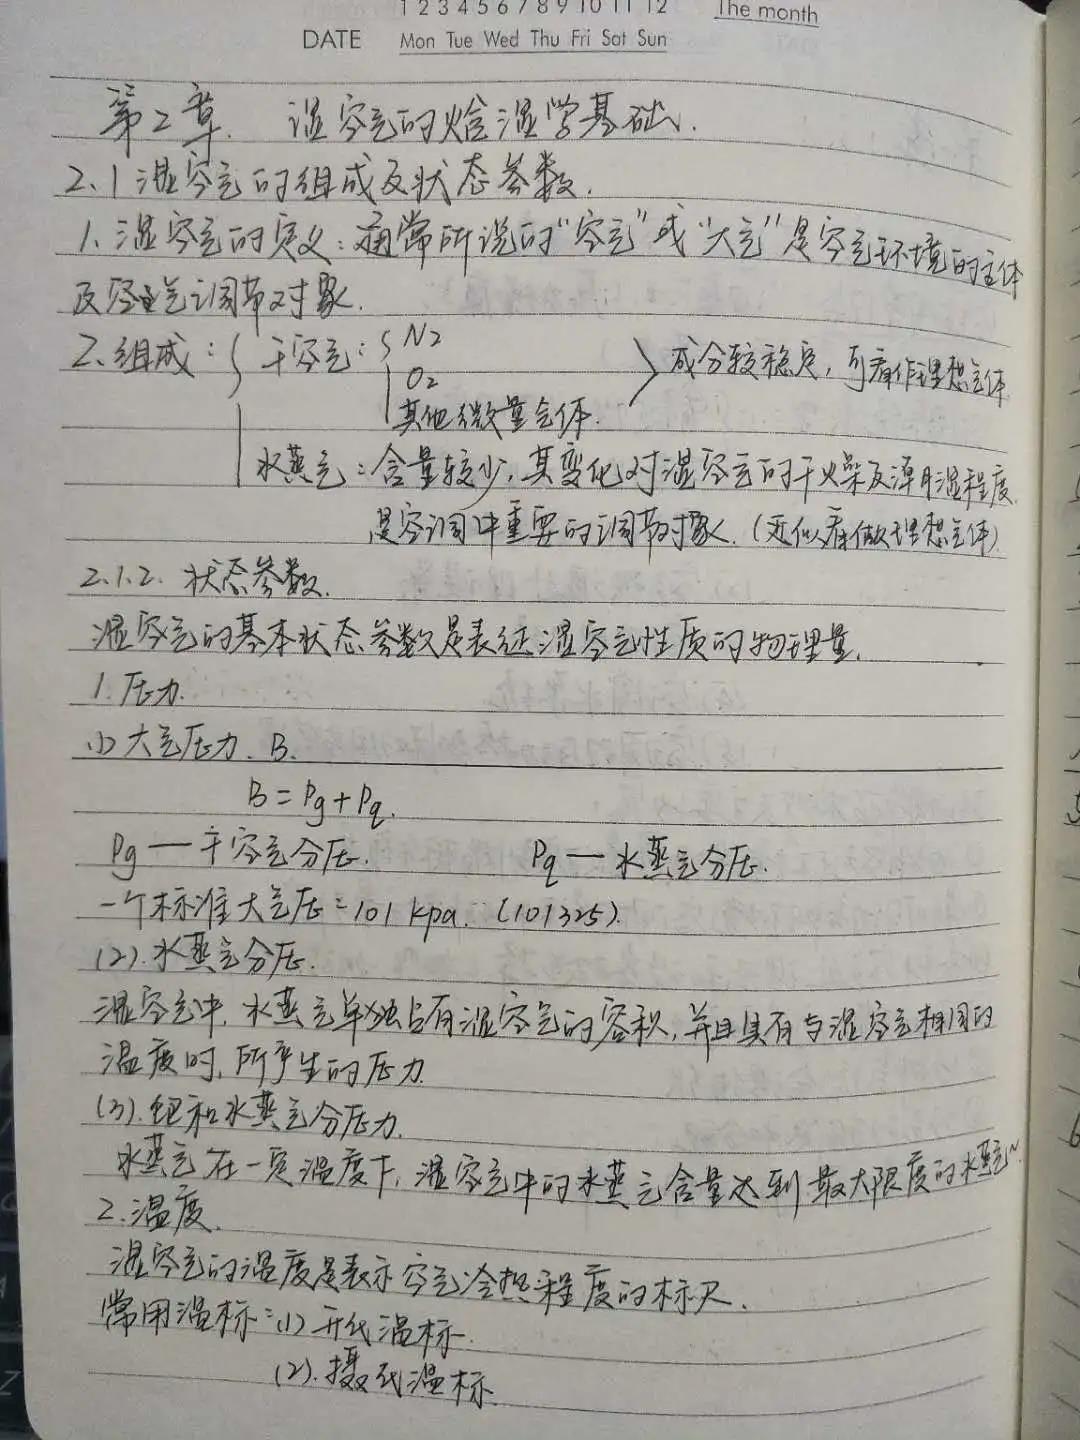 1 2 3 4 5 6 7 8 9 10 11 12 The month
DATE Mon Tue Wed Thu Fri Sat Sun
第2章. 湿空气的焓湿学基础.
2.1 湿空气的组成及状态参数.
1. 湿空气的定义：通常所说的“空气”或“大气”是空气环境的主体
及空气调节对象.
2. 组成： 干空气： N2
O2
其他微量气体. 成分较稳定, 可看作理想气体
水蒸气：含量较少, 其变化对湿空气的干燥及潮湿程度.
是空调中重要的调节对象. (近似看做理想气体)
2.1.2. 状态参数.
湿空气的基本状态参数是表征湿空气性质的物理量.
1. 压力.
(1) 大气压力. B.
B = Pg + Pq.
Pg — 干空气分压. Pq — 水蒸气分压.
一个标准大气压 = 101 kpa. (101325).
(2). 水蒸气分压.
湿空气中, 水蒸气单独占有湿空气的容积, 并且具有与湿空气相同的
温度时, 所产生的压力.
(3). 饱和水蒸气分压力.
水蒸气在一定温度下, 湿空气中的水蒸气含量达到最大限度的水蒸气~
2. 温度.
湿空气的温度是表示空气冷热程度的标尺.
常用温标：(1) 开氏温标.
(2). 摄氏温标.